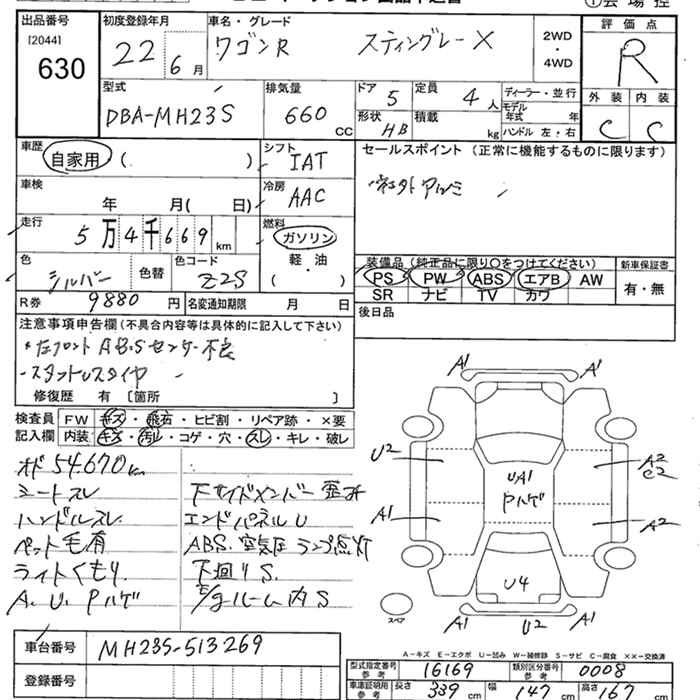 出品番号
[2044]
630
初度登録年月
22年6月
車名・グレード
ワゴンR スティングレー X
2WD
・
4WD
評価点
R
外装 内装
C C
型式
DBA-MH23S
排気量
660 CC
ドア 5
形状 HB
定員 4人
積載 kg
ディーラー・並行
モデル年式 年
ハンドル 左・右
車歴
自家用 ( )
シフト
IAT
セールスポイント (正常に機能するものに限ります)
社外アルミ
車検
年 月( 日)
冷房
AAC
走行
5万4千669 km
燃料
ガソリン
軽・油
( )
色
シルバー
色替
色コード
Z2S
装備品(純正品に限り〇をつけてください)
PS PW ABS エアB AW
SR ナビ TV カワ
新車保証書
有・無
R券 9880円
名変通知期限 月 日
後日品
注意事項申告欄(不具合内容等は具体的に記入して下さい)
・左フロント ABSセンサー不良
・スタッドレスタイヤ
修復歴 有 [箇所 ]
検査員
記入欄
FW キズ・飛石・ヒビ割・リペア跡・×要
内装 キズ・汚レ・コゲ・穴・スレ・キレ・破レ
オド 54.670km
シートスレ
ハンドルスレ
ペット毛有
ライトくもり.
A. U. Pハゲ
下サイドメンバー歪み
エンドパネルU
ABS. 空気圧 ランプ点灯
下回りS.
E/gルーム内S
A1 A1
U2 A2
C2
UA1
Pハゲ
A1 A2
U4
スペア
A1 U2 A1
車台番号 MH23S-513269
登録番号
A-キズ E-エクボ U-凹み W-補修跡 S-サビ C-腐食 ××-交換済
型式指定番号 参考 16169
類別区分番号 参考 0008
車庫証明用 参考 長さ 339 cm 幅 147 cm 高さ 167 cm